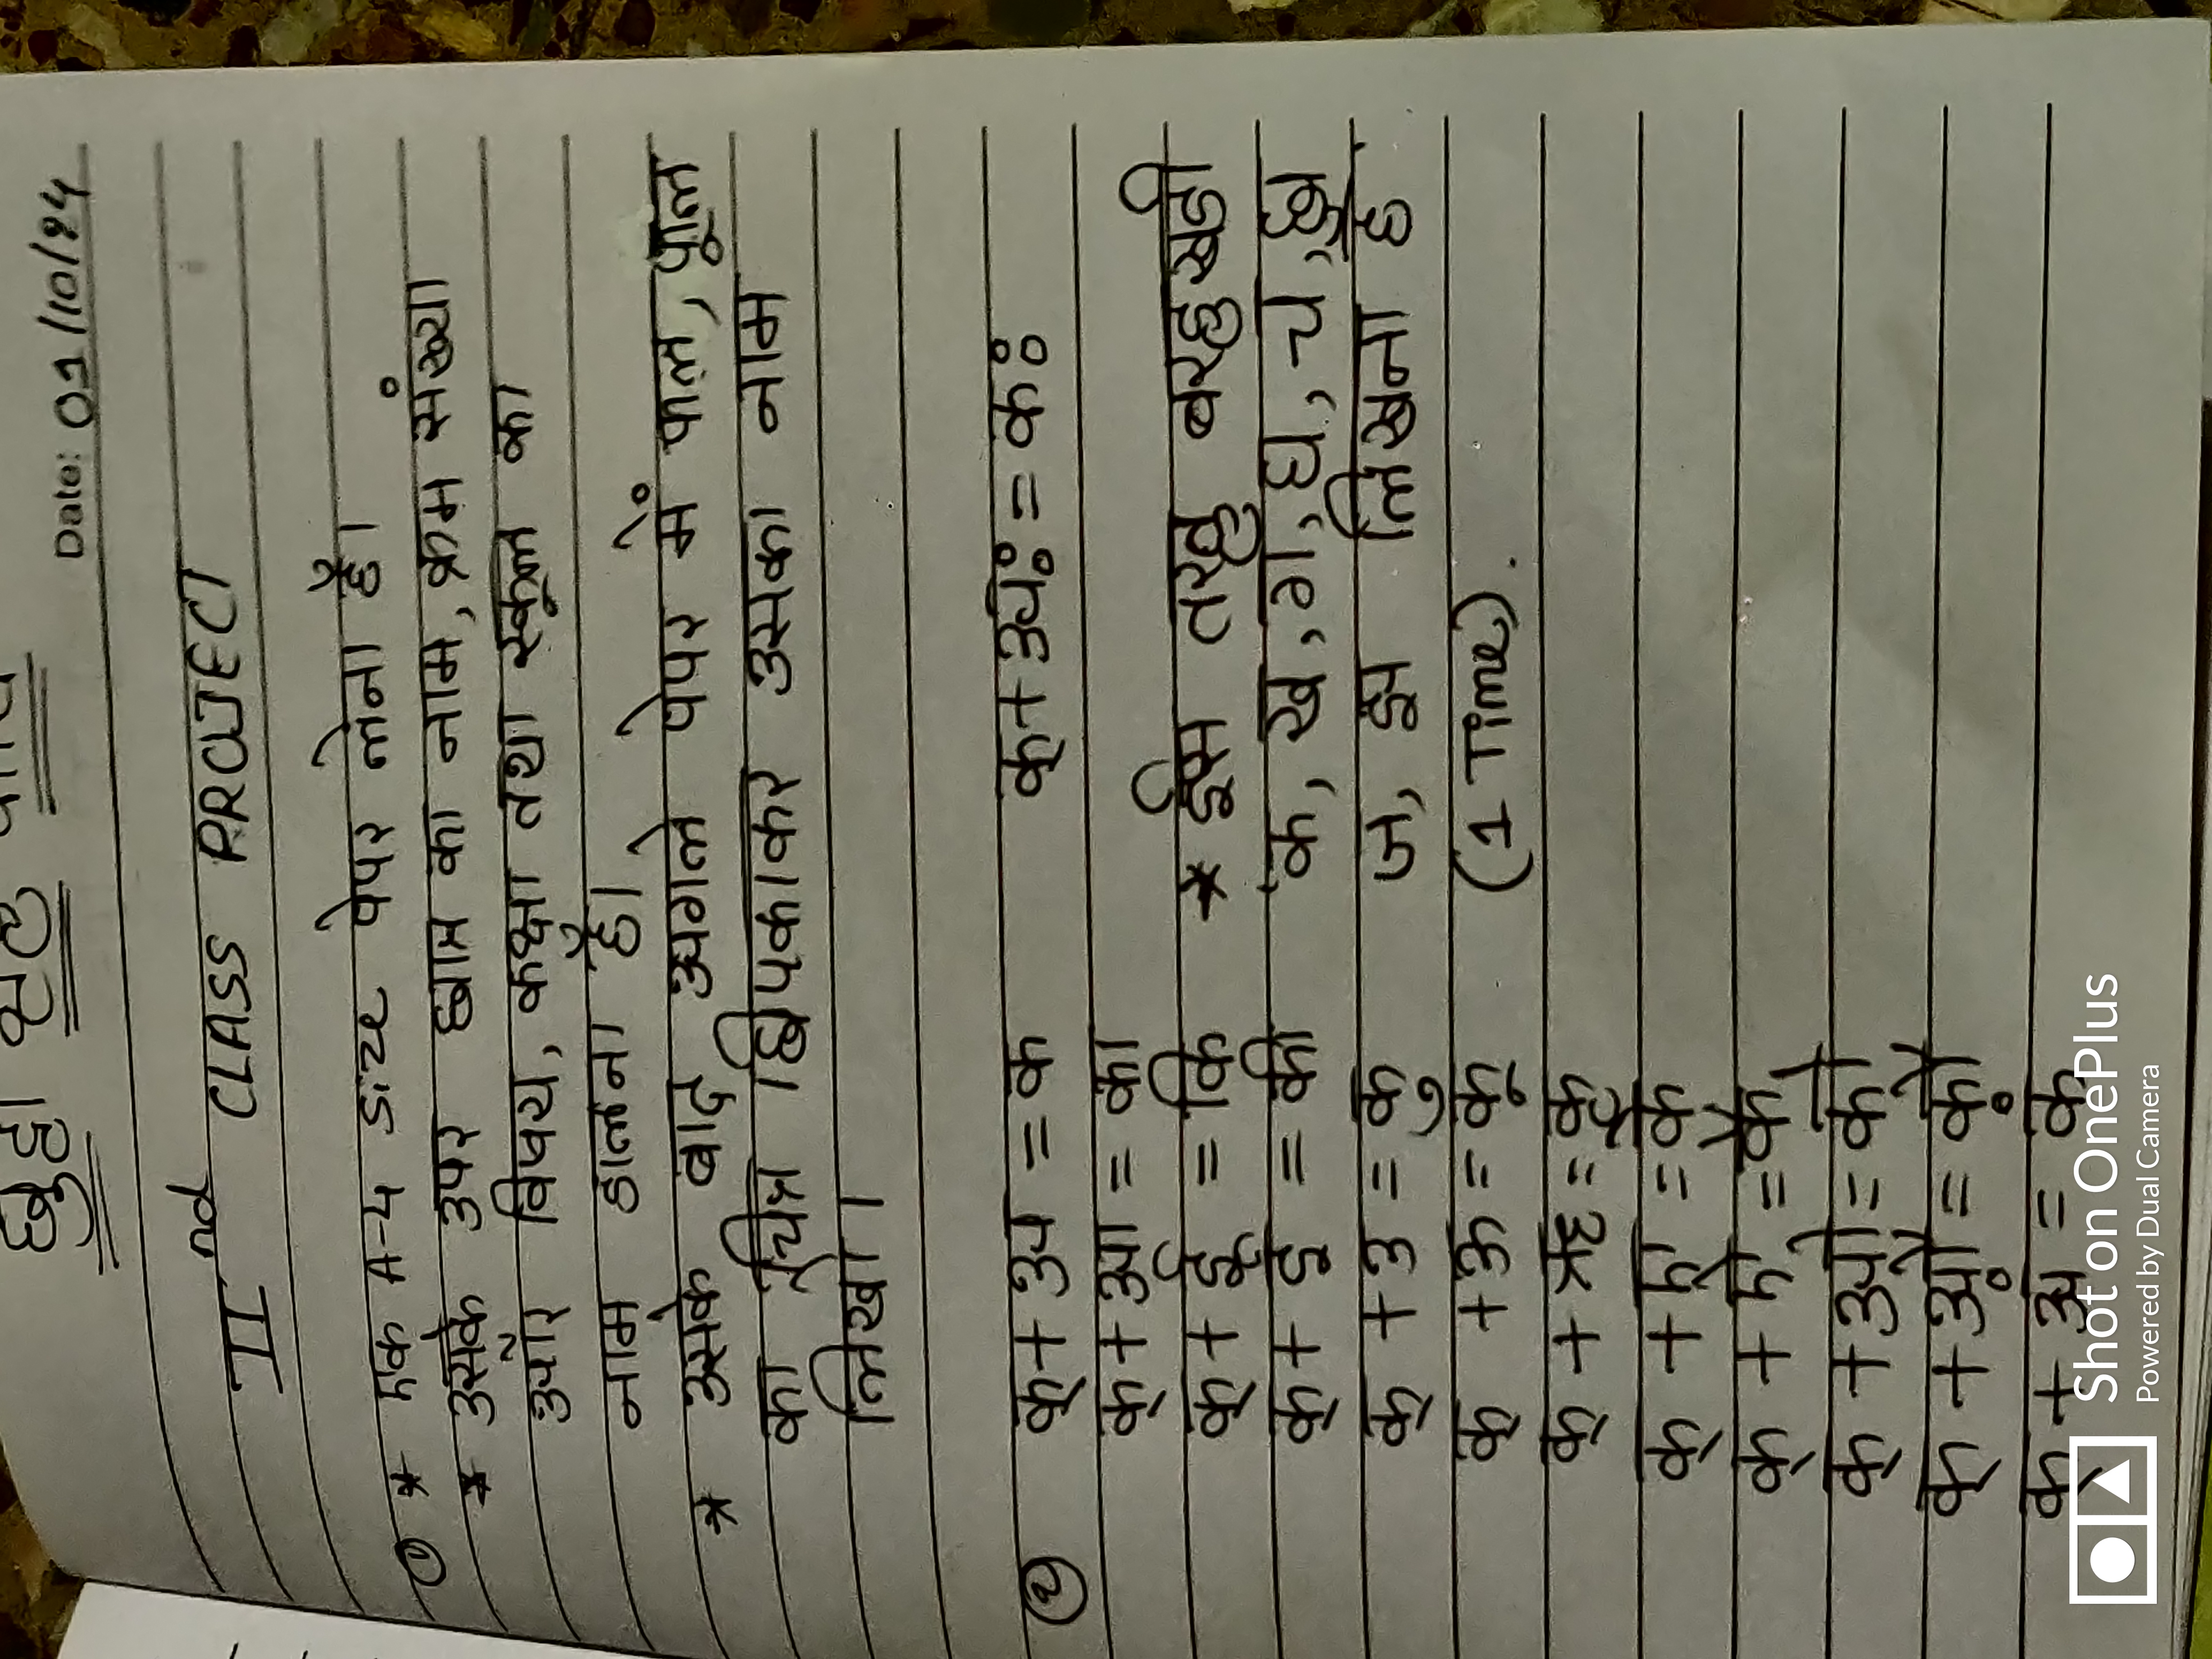 छुट्टी
Date: 01/10/24
IInd CLASS PROJECT
① * एक A-4 साइज पेपर लेना है।
* उसके उपर छात्र का नाम, क्रम संख्या
और विषय, कक्षा तथा स्कूल का
नाम डालना है।
* उसके बाद अगले पेपर में फल, फूल
का चित्र चिपकाकर उसका नाम
लिखो।
② क् + अ = क
क् + आ = का
क् + इ = कि
क् + ई = की
क् + उ = कु
क् + ऊ = कू
क् + ऋ = कृ
क् + ए = के
क् + ऐ = कै
क् + ओ = को
क् + औ = कौ
क् + अं = कं
क् + अः = कः
* इसी तरह बारहखडी
क, ख, ग, घ, च, छ,
ज, झ लिखना है
(1 Time).
Shot on OnePlus
Powered by Dual Camera